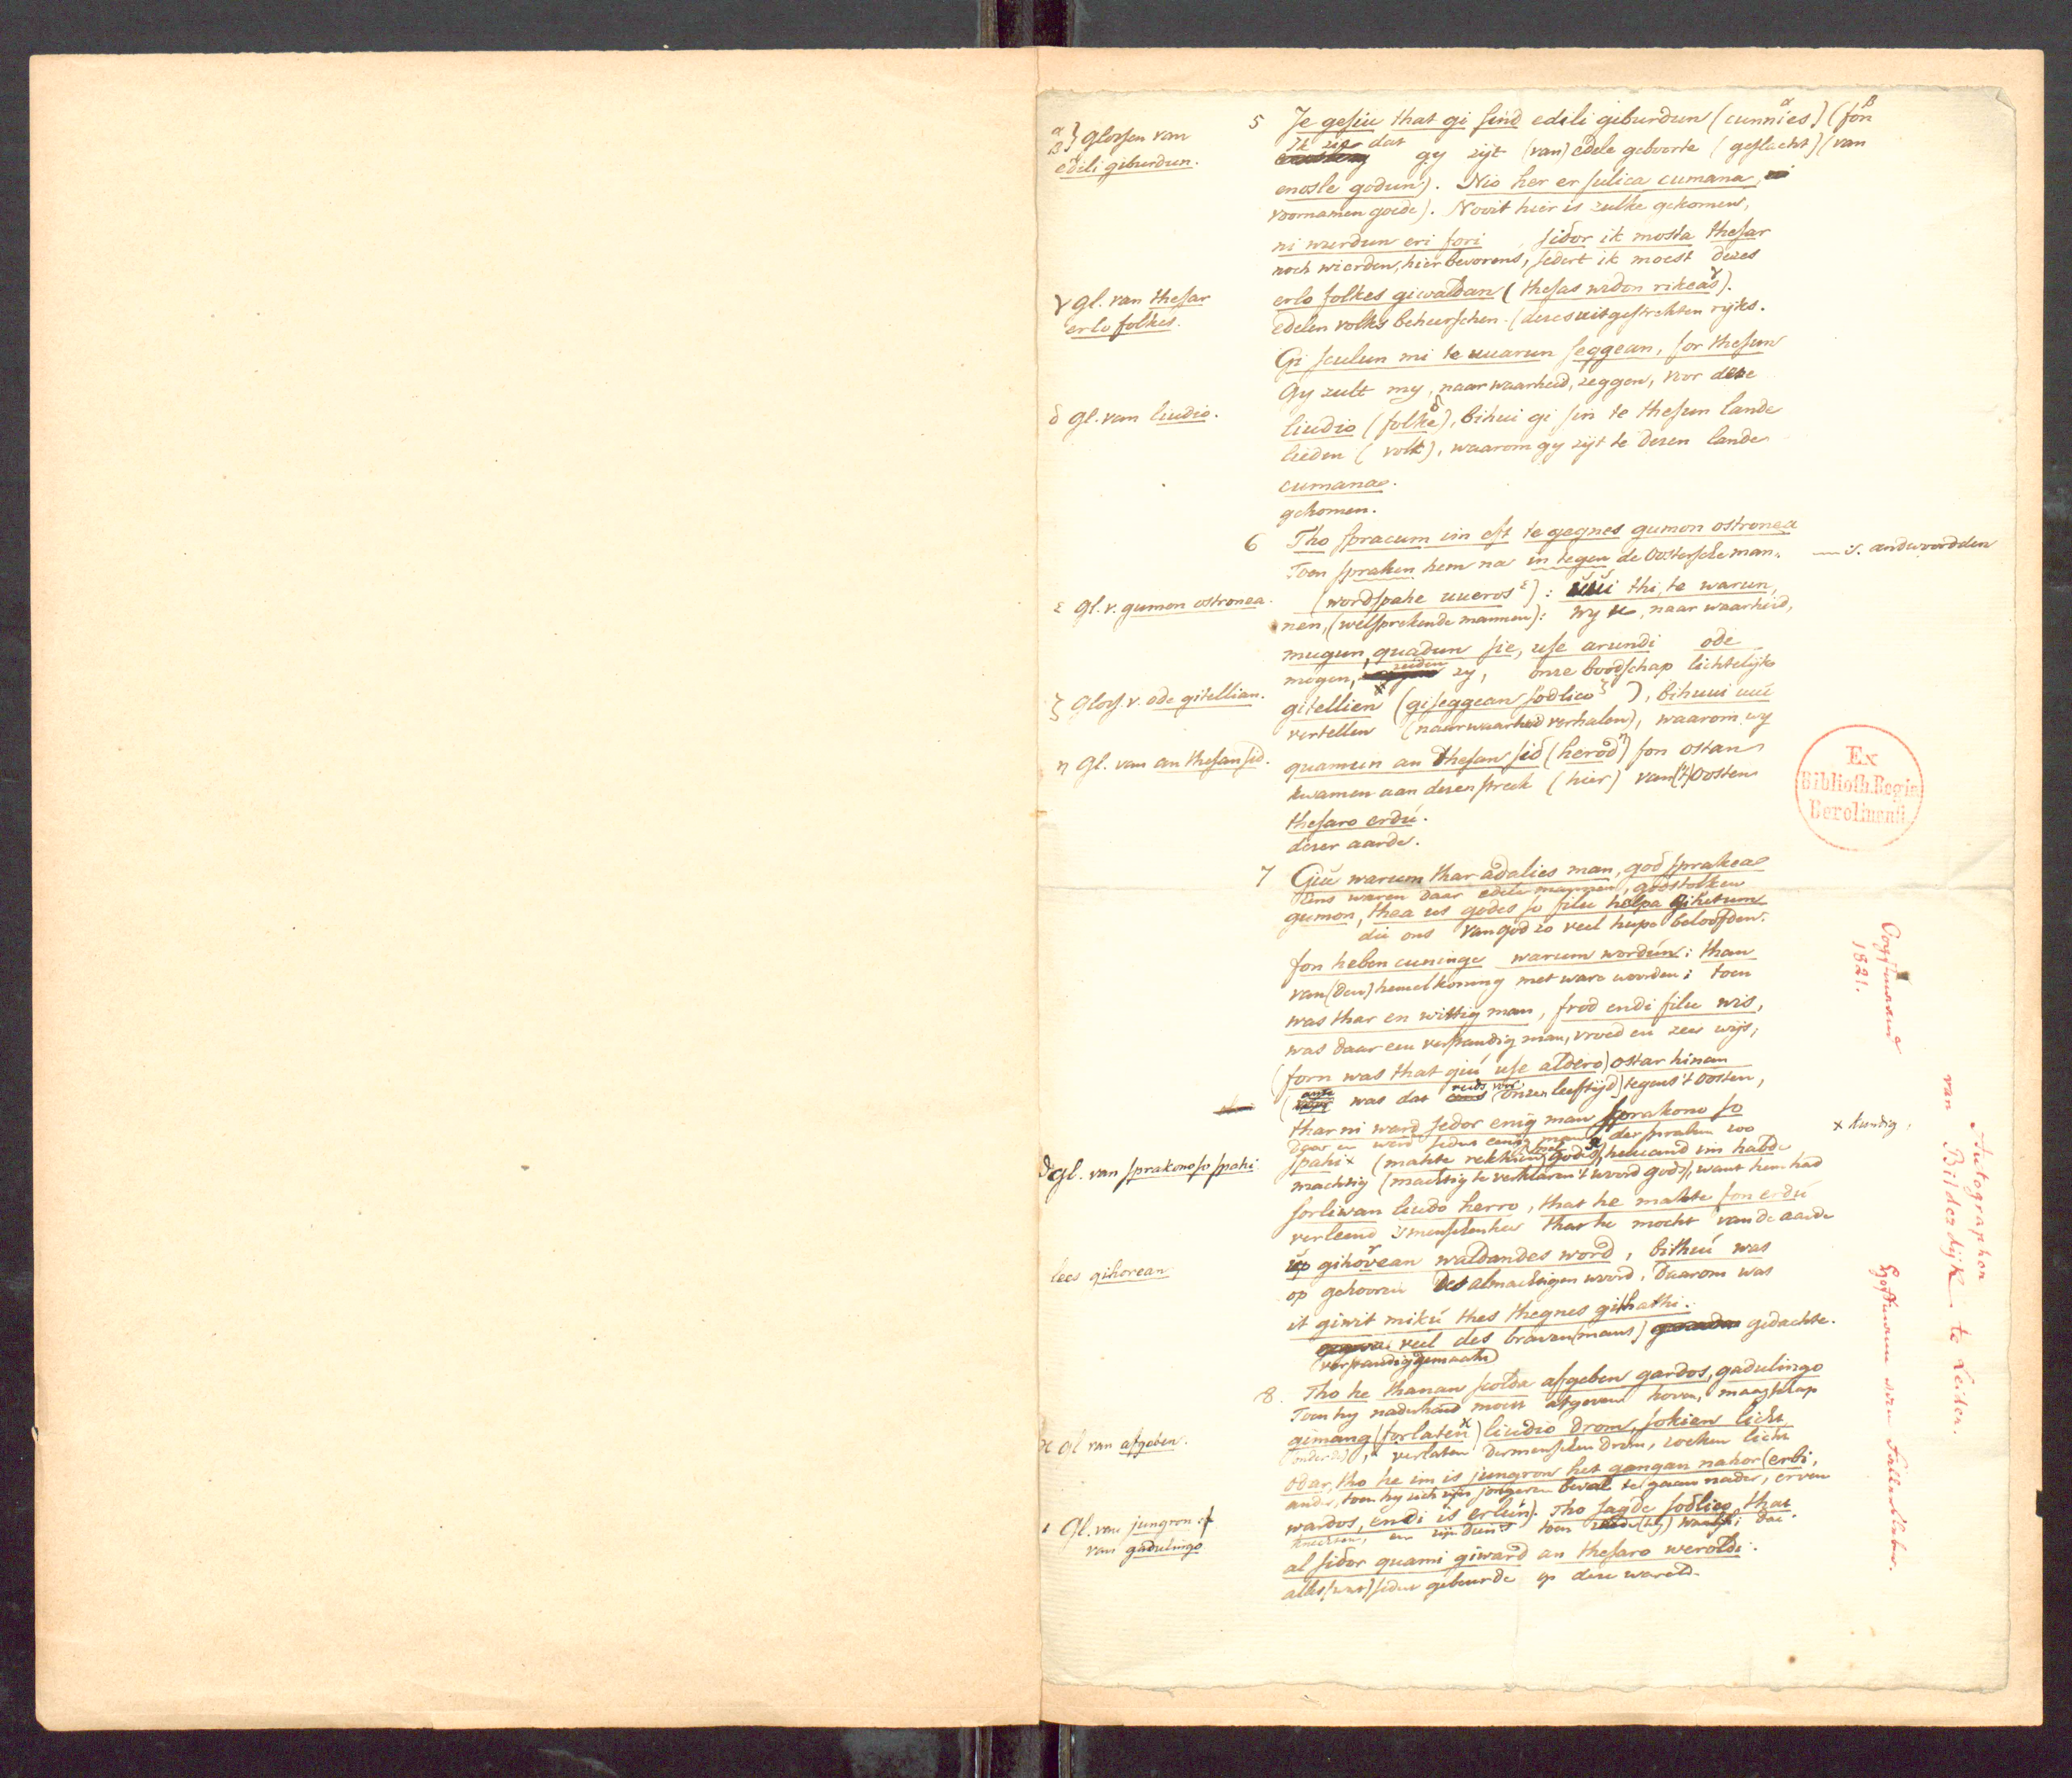 α β } Glossen van
edili giburdun.
5 Je gesiu that gi sind edili giburdun (cunnies α) (fon β
Ik zie dat gy zijt (van) edele geboorte (geslacht) (van
enosle godun). Nio her er sulica cumana,
voornamen goede). Nooit hier is zulke gekomen,
ni wurdun eri fori, sidor ik mosta thesar
noch wierden, hier bevorens, sedert ik moest dezes
γ Gl. van thesar
erlo folkes.
erlo folkes giwaldan (thesas widon rikeas γ).
edelen volks beheerschen. (dezes uitgestrekten rijks.
Gi sculun mi te uuarun seggean, for thesun
Gy zult my, naar waarheid, zeggen, voor deze
δ Gl. van liudio.
liudio (folke δ), bihui gi sin te thesun lande
lieden (volk), waarom gy zijt te dezen lande
cumana.
gekomen.
6 Tho spracun im eft te gegnes gumon ostronea
Toen spraken hem na in tegen de Oostersche man-
— i. andwoordden
ε Gl. v. gumon ostronea.
(wordspahe uueros ε): uui thi, te warun,
nen, (welsprekende mannen): wy u, naar waarheid,
mugun, quadun sie, use arundi ode
mogen, zeiden zy, onze boodschap lichtelijk
ζ Gloss. v. ode gitellian.
gitellien (giseggean sodlico ζ), bihuui uui
vertellen (naar waarheid verhalen), waarom wy
η Gl. van an thesan sid.
quamun an thesan sid (herod η) fon ostan
kwamen aan dezen streek (hier) van ('t) Oosten
thesaro erdu.
dezer aarde.
7 Giu warun thar adalies man, god sprakea
Eens waren daar edele mannen, godstolken
gumon, thea us godes so filu helpa gihetun
die ons van god zo veel hulpe beloofden.
fon heben cuninge warum wordun; than
van (den) hemelkoning met ware woorden; toen
was thar en wittig man, frod endi filu wis,
was daar een verstandig man, vroed en zeer wijs,
(forn was that giu use aldero) ostar hinan
was dat reeds voor onzen leeftijd) tegens 't Oosten,
thar ni ward sedor enig man sprakono so
daar en werd sedert eenig man der spraken zoo
ϑ Gl. van sprakono so spahi
spahi x (mahte rekkien spel godes ϑ), huuand im habde
x kundig,
machtig (machtig te verklaren 't woord gods), want hem had
forliwan liudo herro, that he mahte fon erdu
verleend 's menschen heer that he mocht van de aarde
lees gihorean
up gihovean waldandes word, bithiu was
op gehooren des almachtigen woord, Daarom was
it giwit mikil thes thegnes githathi.
veel des braven (mans) gedachte.
(verstandig gemaakt)
8. Tho he thanan scolda afgeben gardos, gadulingo
Toen hy naderhand moest afgeven hoven, maagschap
ϰ Gl. van afgeben.
gimang (forlaten ϰ) liudio drom, sokien licht
(onder), verlaten der menschen drom, zoeken licht
odar, tho he im is jungron het gangan nahor (erbi,
ander, toen hy zich zijn jongeren beval te gaan nader, erven
ι Gl. van jungron :f
van gadulingo
wardos, endi is erlun). Tho sagde sodlico, that
en zijn toen zeide (hy) dat.
al sidor quami giward an thesaro weroldi.
alles (wat) sedert gebeurde op deze wareld.
Ex
Biblioth. Regia
Berolinensi.
Autographon
van Bilderdijk te Leiden.
1821.
Hoffmann von Fallersleben.